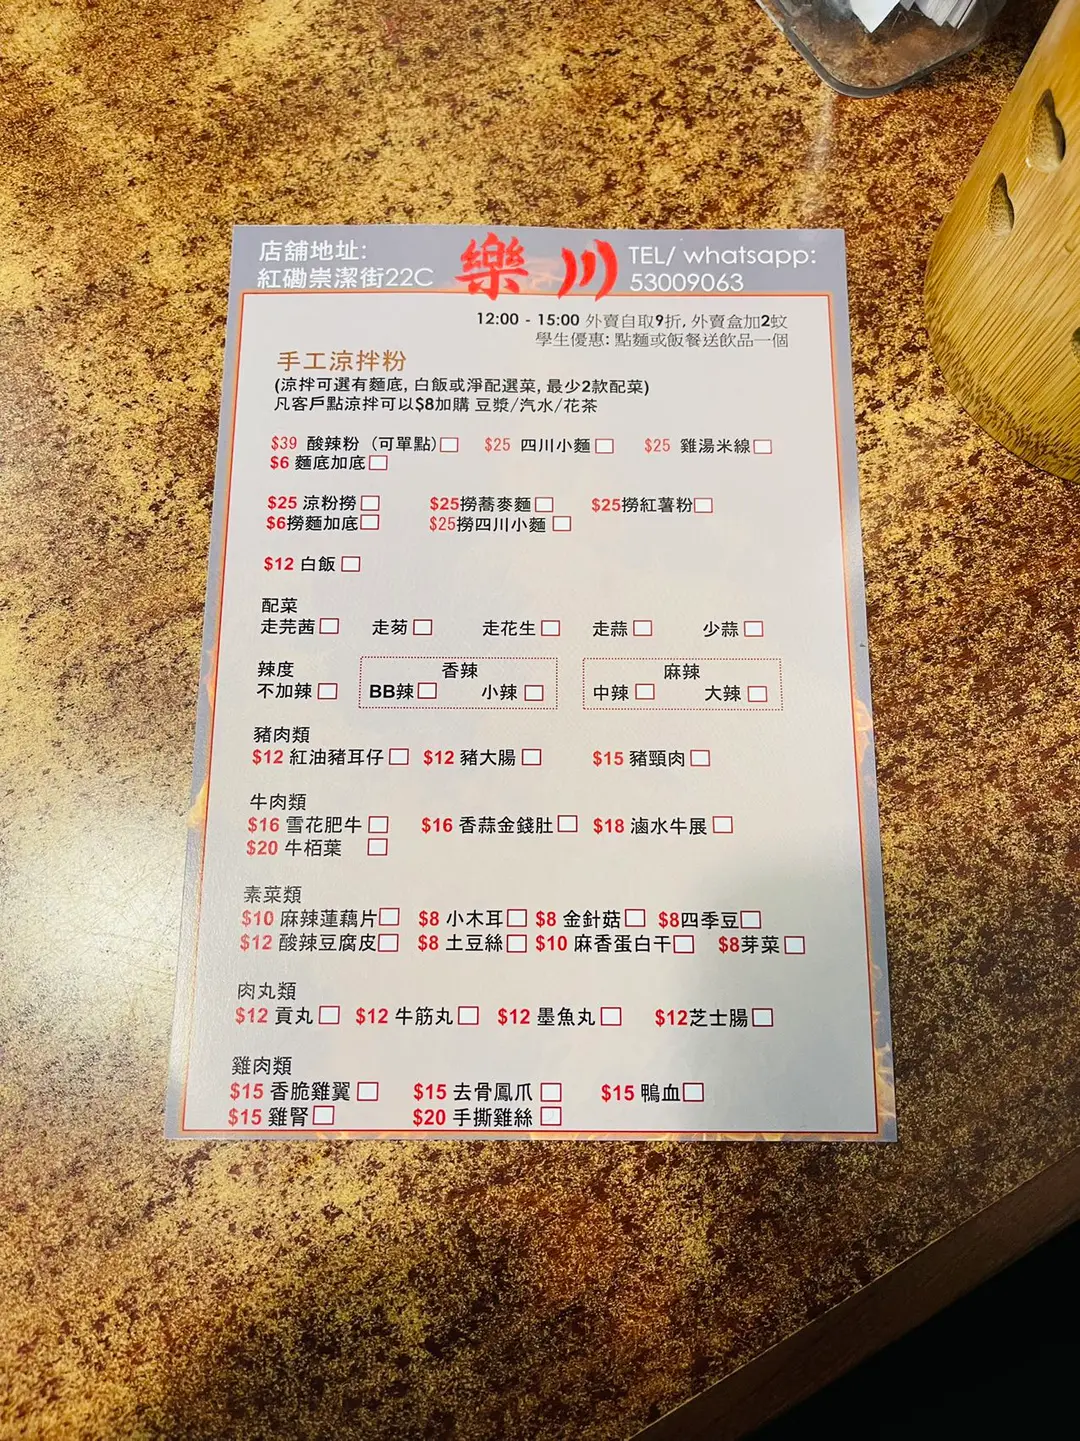 店舖地址:
紅磡崇潔街22C
樂川
TEL/ whatsapp:
53009063
12:00 - 15:00 外賣自取9折, 外賣盒加2蚊
學生優惠: 點麵或飯餐送飲品一個
手工涼拌粉
(涼拌可選有麵底, 白飯或淨配選菜, 最少2款配菜)
凡客戶點涼拌可以$8加購 豆漿/汽水/花茶
$39 酸辣粉 (可單點) $25 四川小麵 $25 雞湯米線
$6 麵底加底
$25 涼粉撈 $25撈蕎麥麵 $25撈紅薯粉
$6撈麵加底 $25撈四川小麵
$12 白飯
配菜
走芫茜 走蒭 走花生 走蒜 少蒜
辣度 香辣 麻辣
不加辣 BB辣 小辣 中辣 大辣
豬肉類
$12 紅油豬耳仔 $12 豬大腸 $15 豬頸肉
牛肉類
$16 雪花肥牛 $16 香蒜金錢肚 $18 滷水牛展
$20 牛栢葉
素菜類
$10 麻辣蓮藕片 $8 小木耳 $8 金針菇 $8四季豆
$12 酸辣豆腐皮 $8 土豆絲 $10 麻香蛋白干 $8芽菜
肉丸類
$12 貢丸 $12 牛筋丸 $12 墨魚丸 $12芝士腸
雞肉類
$15 香脆雞翼 $15 去骨鳳爪 $15 鴨血
$15 雞腎 $20 手撕雞絲